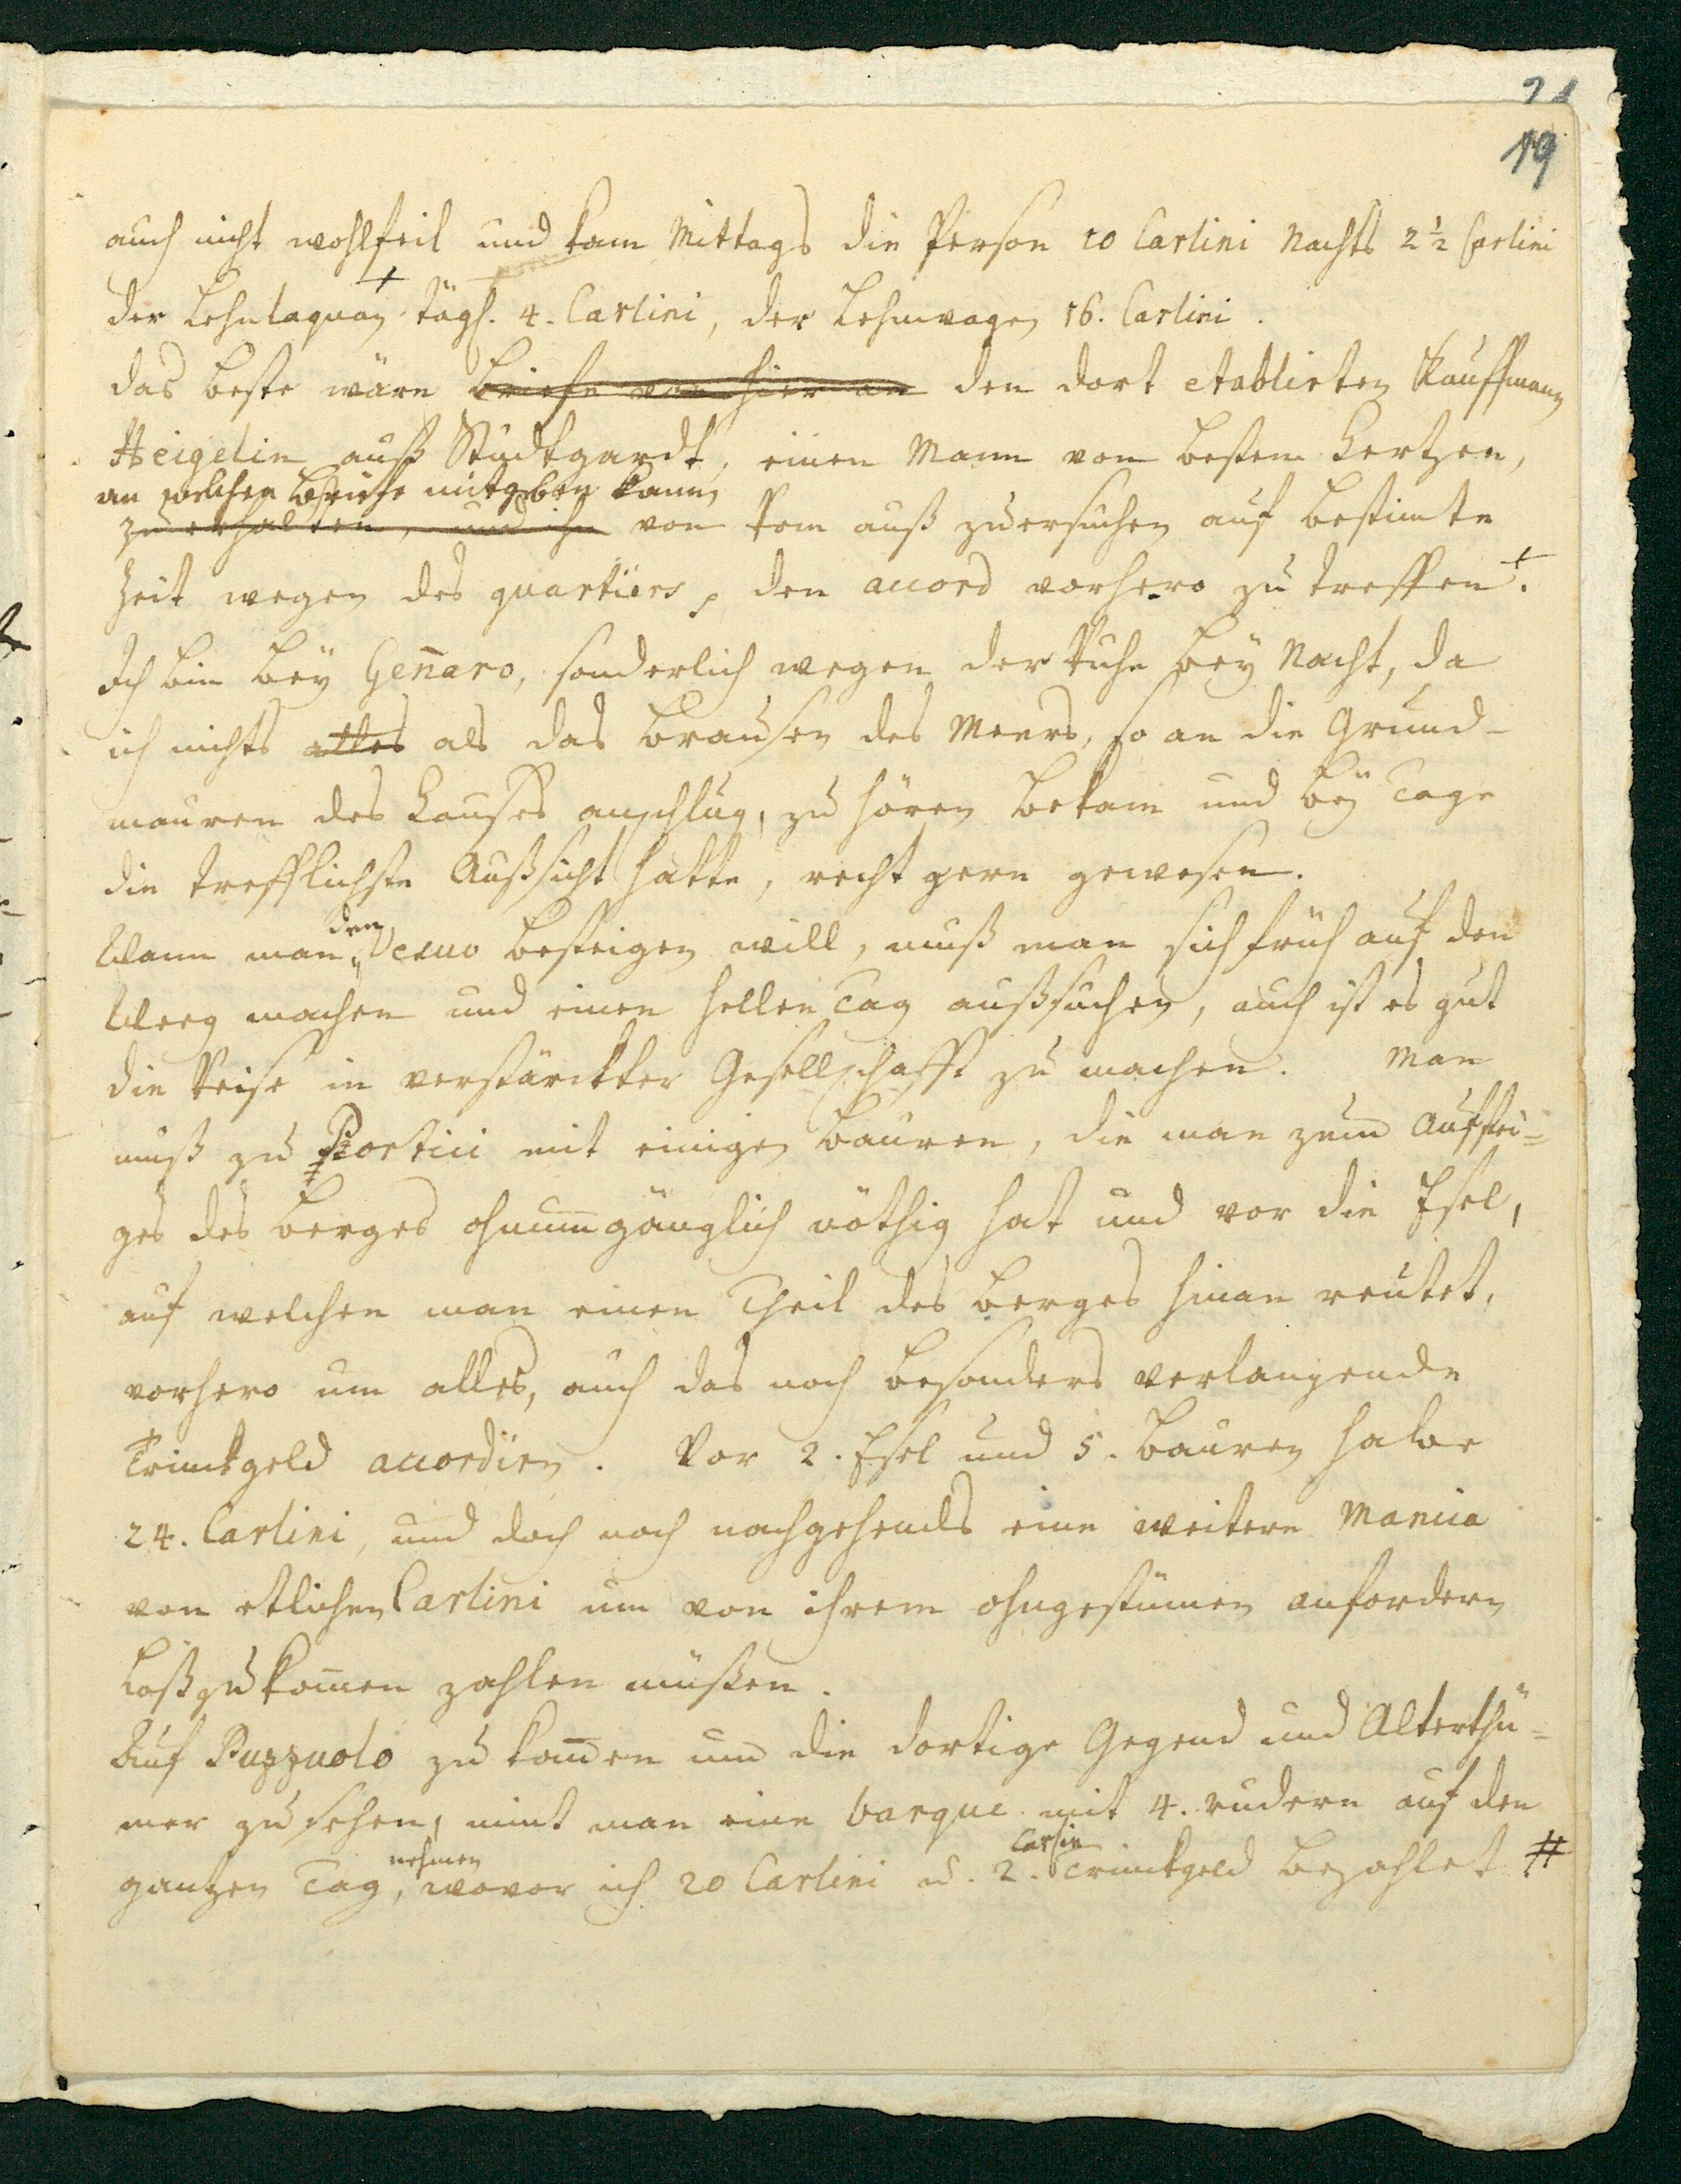 21
19
auch nicht wohlfeil und kam Mittags die Person 10 Carlini Nachts 2 1/2 Carlini
der Lehnlaquay + tägl. 4. Carlini, der Lehnwagen 16. Carlini.
das beste wäre briefe von hier an den dort etablirten Kauffmann
Heigelin auß Studtgardt, einen Mann von bestem Hertzen,
an welchen Briefe mitgeben kann,
zu erhalten, und ihn von Rom auß zuersuchen auf bestimte
Zeit wegen des quartiers, den accord vorhero zu treffen +.
Ich bin bey Gen̄aro, sonderlich wegen der Ruhe bey Nacht, da
ich nichts alles als das brausen des Meers, so an die Grund-
mauren des Hauses anschlug, zu hören bekam und bey Tage
die trefflichste Außsicht hatte, recht gern gewesen.
den
Wann man Vesuv besteigen will, muß man sich früh auf den
Weeg machen und einen hellen Tag außsuchen, auch ist es gut
die Reise in verstärckter Gesellschafft zu machen. Man
muß zu Portici mit einigen Bauren, die man zum Aufstei=
gen des Berges ohnumgänglich nöthig hat und vor die Esel,
auf welchen man einen Theil des Berges hinan reutet,
vorhero um alles, auch das noch besonders verlangende
Trinckgeld accordiren. Vor 2. Esel und 5. Bauren habe
24. Carlini, und doch noch nachgehends eine weitere Mancia
von etlichen Carlini um von ihrem ohngestümen anfordern
loßzukom̄en zahlen müßen.
Auf Puzzuolo zu kom̄en um die dortige Gegend und Alterthü=
mer zu sehen, nimt man eine barque mit 4. rudern auf den
nehmen Carlin
gantzen Tag, wovor ich 20 Carlini u. 2. Trinckgeld bezahlet #